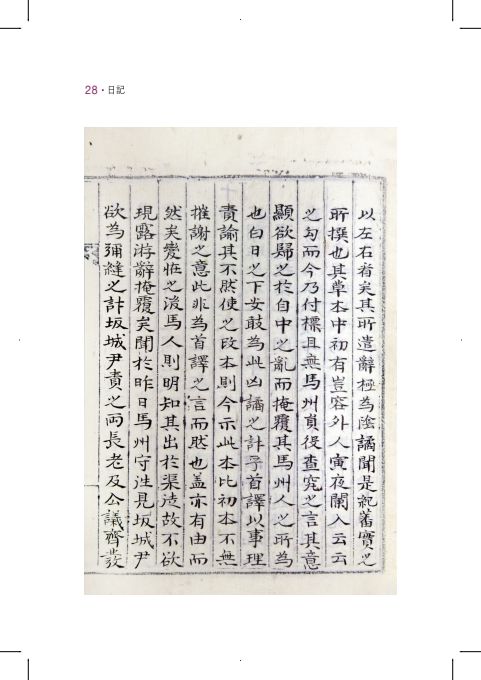 28·日記
以左右者矣其所遣辭極為陰譎聞是紀蕃實之
所撰也其草本中初有豈容外人寅夜闌入云云
之句而今乃付標且無馬州員役查究之言其意
顯欲歸之於自中之亂而掩覆其馬州人之所為
也白日之下安敢為此凶譎之計乎首譯以事理
責諭其不然使之改本則今示此本比初本不無
摧謝之意此非為首譯之言而然也盖亦有由而
然矣變怪之後馬人則明知其出於渠迲故不欲
現露游辭掩覆矣聞於昨日馬州守往見坂城尹
欲為彌縫之計坂城尹責之両長老及公議齊發